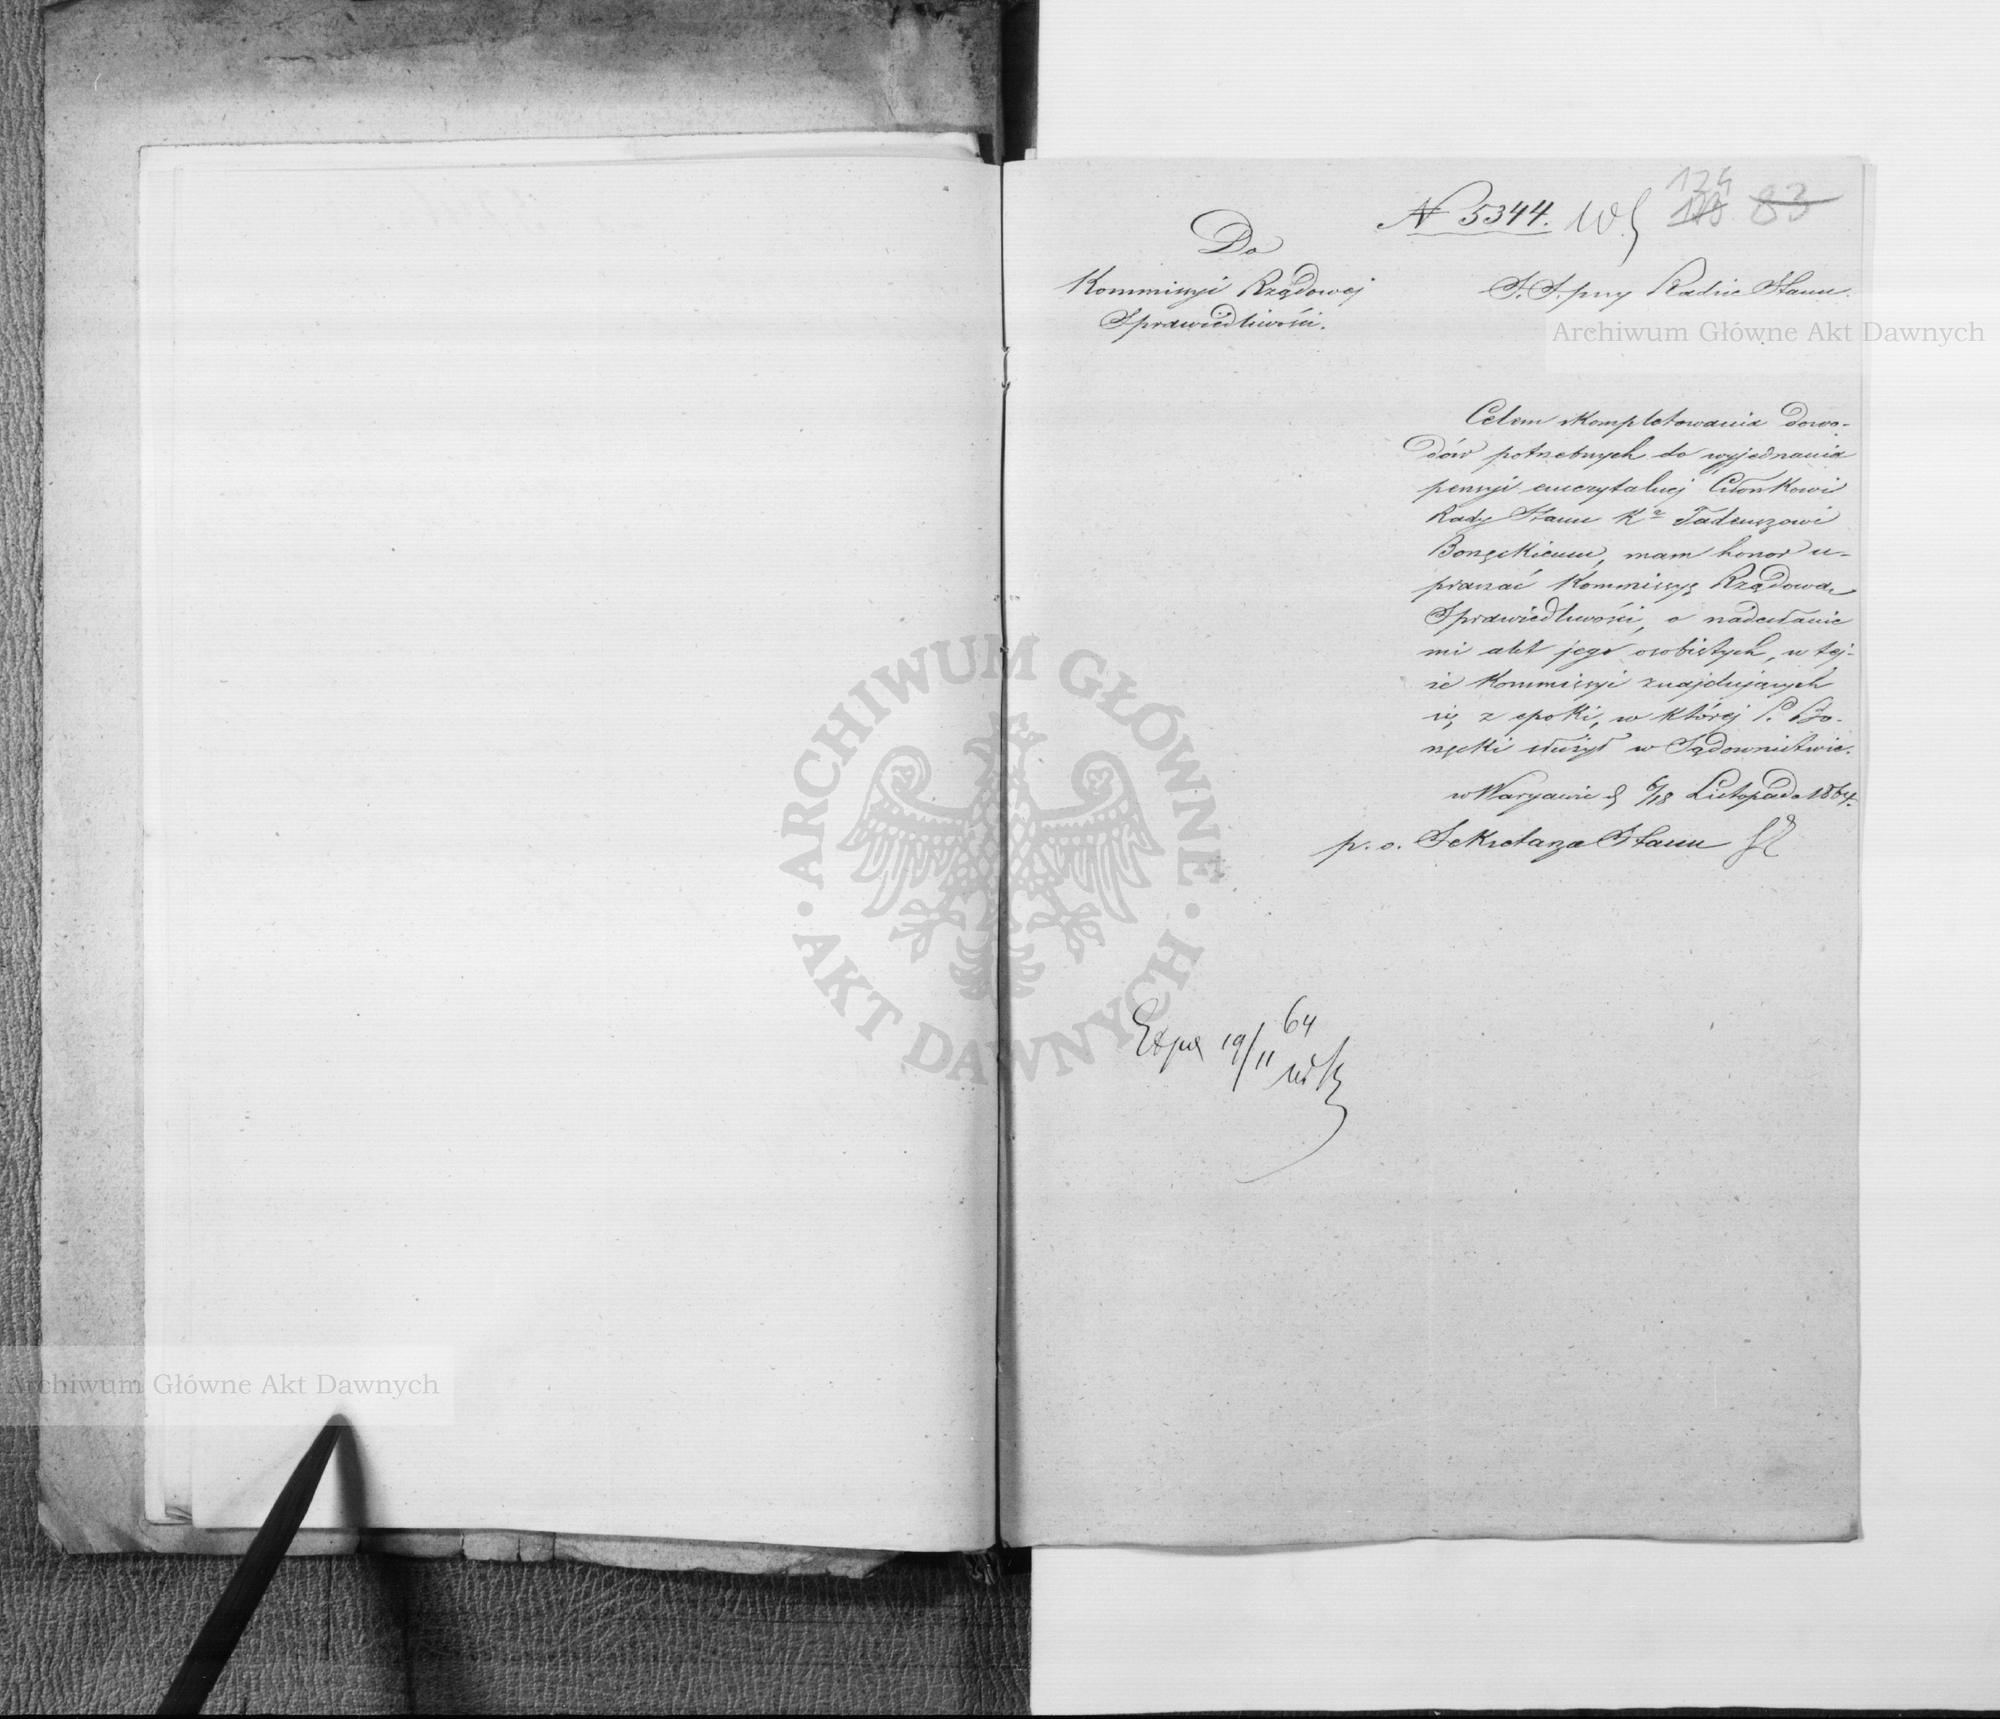 N 5344.
124
83
Do
Kommissyi Rządowej
Sprawiedliwości.
S. S. przy Radzie Stanu.
Archiwum Główne Akt Dawnych
Celem skompletowania dowo-
dów potrzebnych do wyjednania
pensyi emerytalnej Członkowi
Rady Stanu Kr Tadeuszowi
Boręckiemu, mam honor u-
praszać Kommissyę Rządową
Sprawiedliwości, o nadesłanie
mi akt jego osobistych, w tej-
że Kommissyi znajdujących
się, z epoki, w której P. Bo-
ręcki służył w Sądownictwie.
w Warszawie d 6/18 Listopada 1864.
p. o. Sekretarza Stanu
Exped 19/11 64
ARCHIWUM GŁÓWNE
AKT DAWNYCH
Archiwum Główne Akt Dawnych